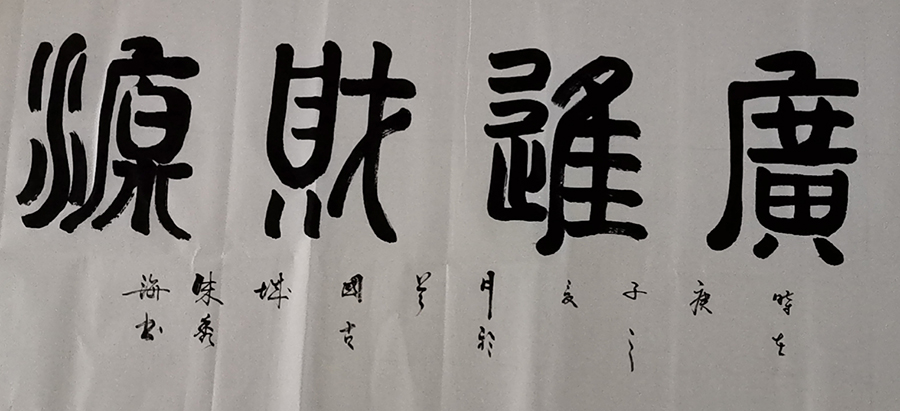 廣進財源
時在
庚
子之
夏
月於
莒
國古
城
陳秀
海書